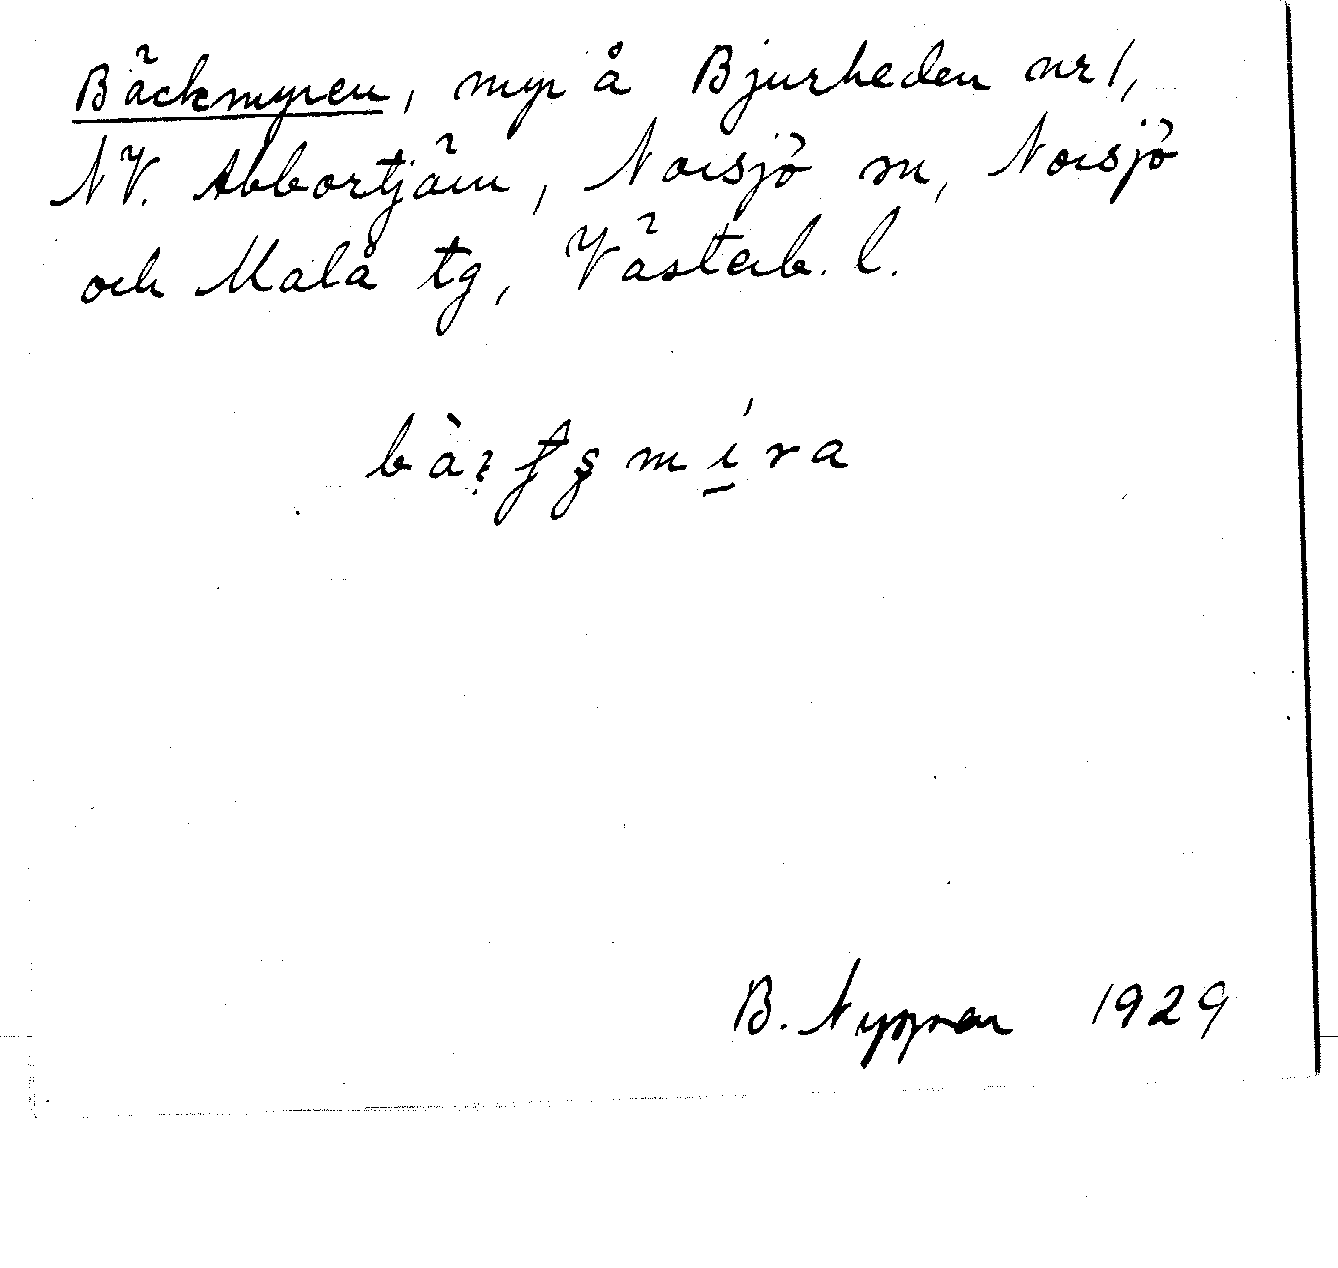 Bäckmyren, myr å Bjurheden nr 1,
NV. Abbortjärn, Norsjö sn, Norsjö
och Malå tg, Västerb. l.
B. Nyman 1929